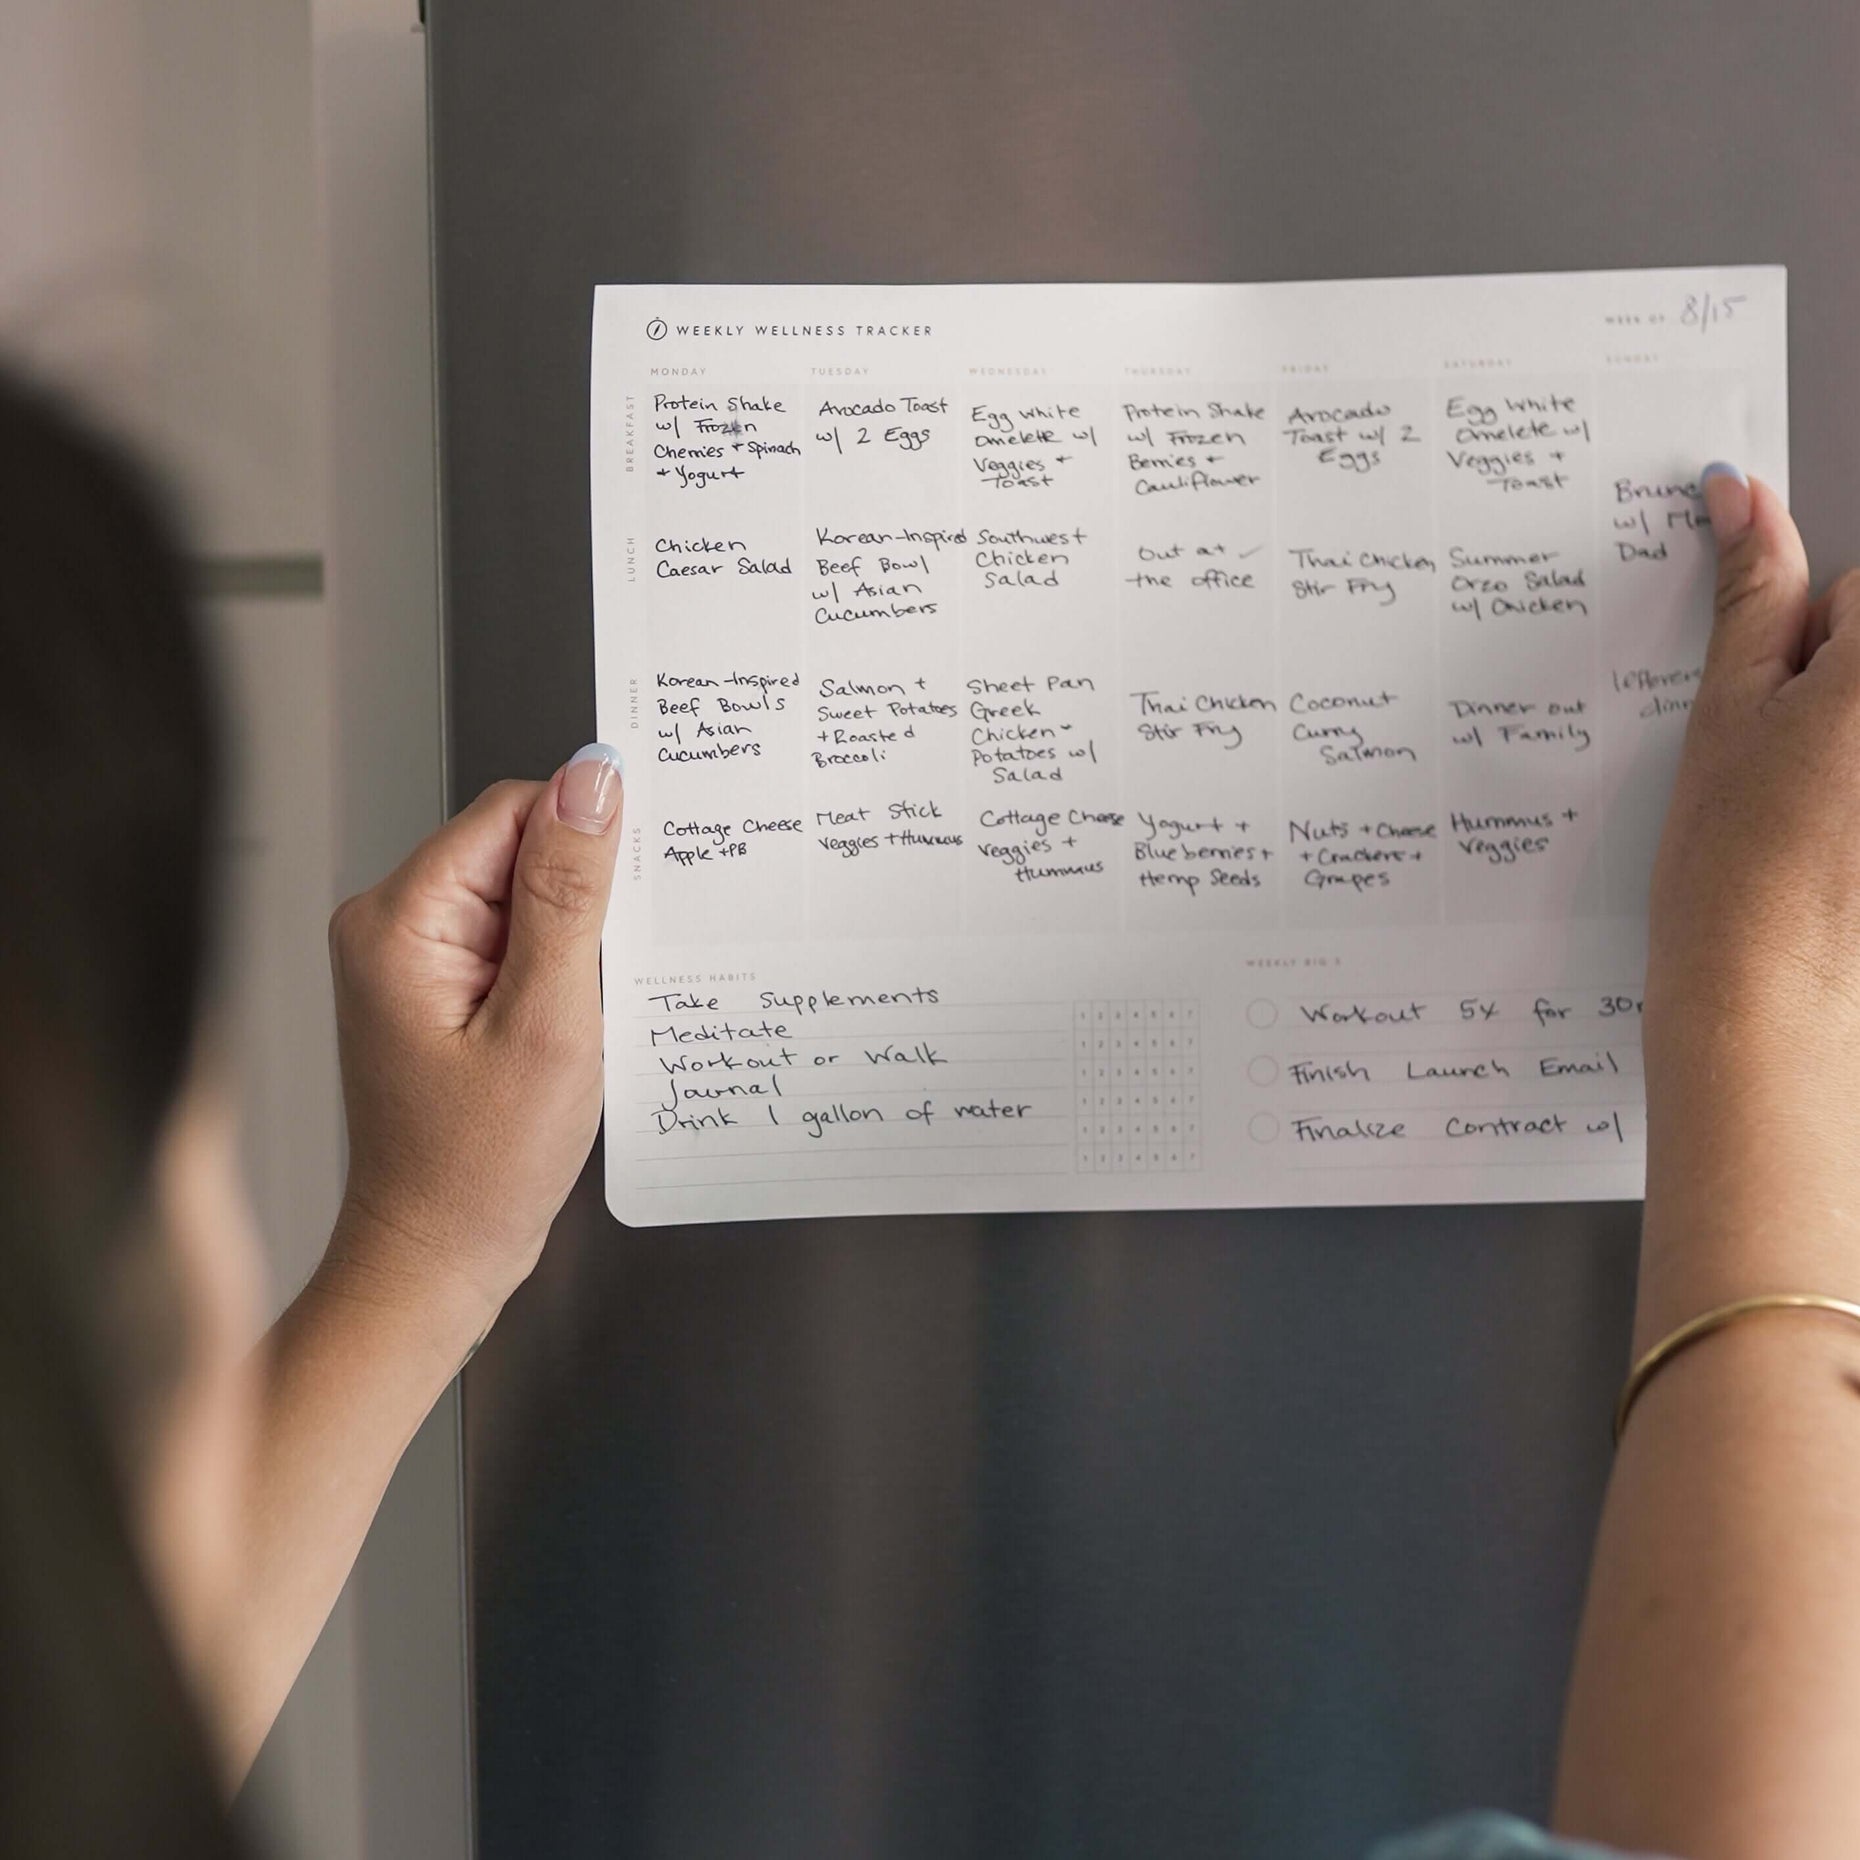 WEEKLY WELLNESS TRACKER
WEEK OF 8/15
MONDAY
TUESDAY
WEDNESDAY
THURSDAY
FRIDAY
SATURDAY
SUNDAY
BREAKFAST
Protein Shake
w/ Frozen
Cherries + Spinach
+ Yogurt
Avocado Toast
w/ 2 Eggs
Egg White
Omelette w/
Veggies +
Toast
Protein Shake
w/ Frozen
Berries +
Cauliflower
Avocado
Toast w/ 2
Eggs
Egg White
Omelete w/
Veggies +
Toast
Brunc
w/
Dad
LUNCH
Chicken
Caesar Salad
Korean-Inspired
Beef Bowl
w/ Asian
Cucumbers
Southwest
Chicken
Salad
Out at
the office
Thai Chicken
Stir Fry
Summer
Orzo Salad
w/ Chicken
DINNER
Korean-Inspired
Beef Bowls
w/ Asian
Cucumbers
Salmon +
Sweet Potatoes
+ Roasted
Broccoli
Sheet Pan
Greek
Chicken
Potatoes w/
Salad
Thai Chicken
Stir Fry
Coconut
Curry
Salmon
Dinner out
w/ Family
leftovers
dinn
SNACKS
Cottage Cheese
Apple + PB
Meat Stick
Veggies + Hummus
Cottage Cheese
Veggies +
Hummus
Yogurt +
Blueberries +
Hemp Seeds
Nuts + Cheese
+ Crackers +
Grapes
Hummus +
Veggies
WELLNESS HABITS
Take Supplements
Meditate
Workout or Walk
Journal
Drink 1 gallon of water
1 2 3 4 5 6 7
1 2 3 4 5 6 7
1 2 3 4 5 6 7
1 2 3 4 5 6 7
1 2 3 4 5 6 7
1 2 3 4 5 6 7
WEEKLY BIG 3
Workout 5x for 30
Finish Launch Email
Finalize Contract w/